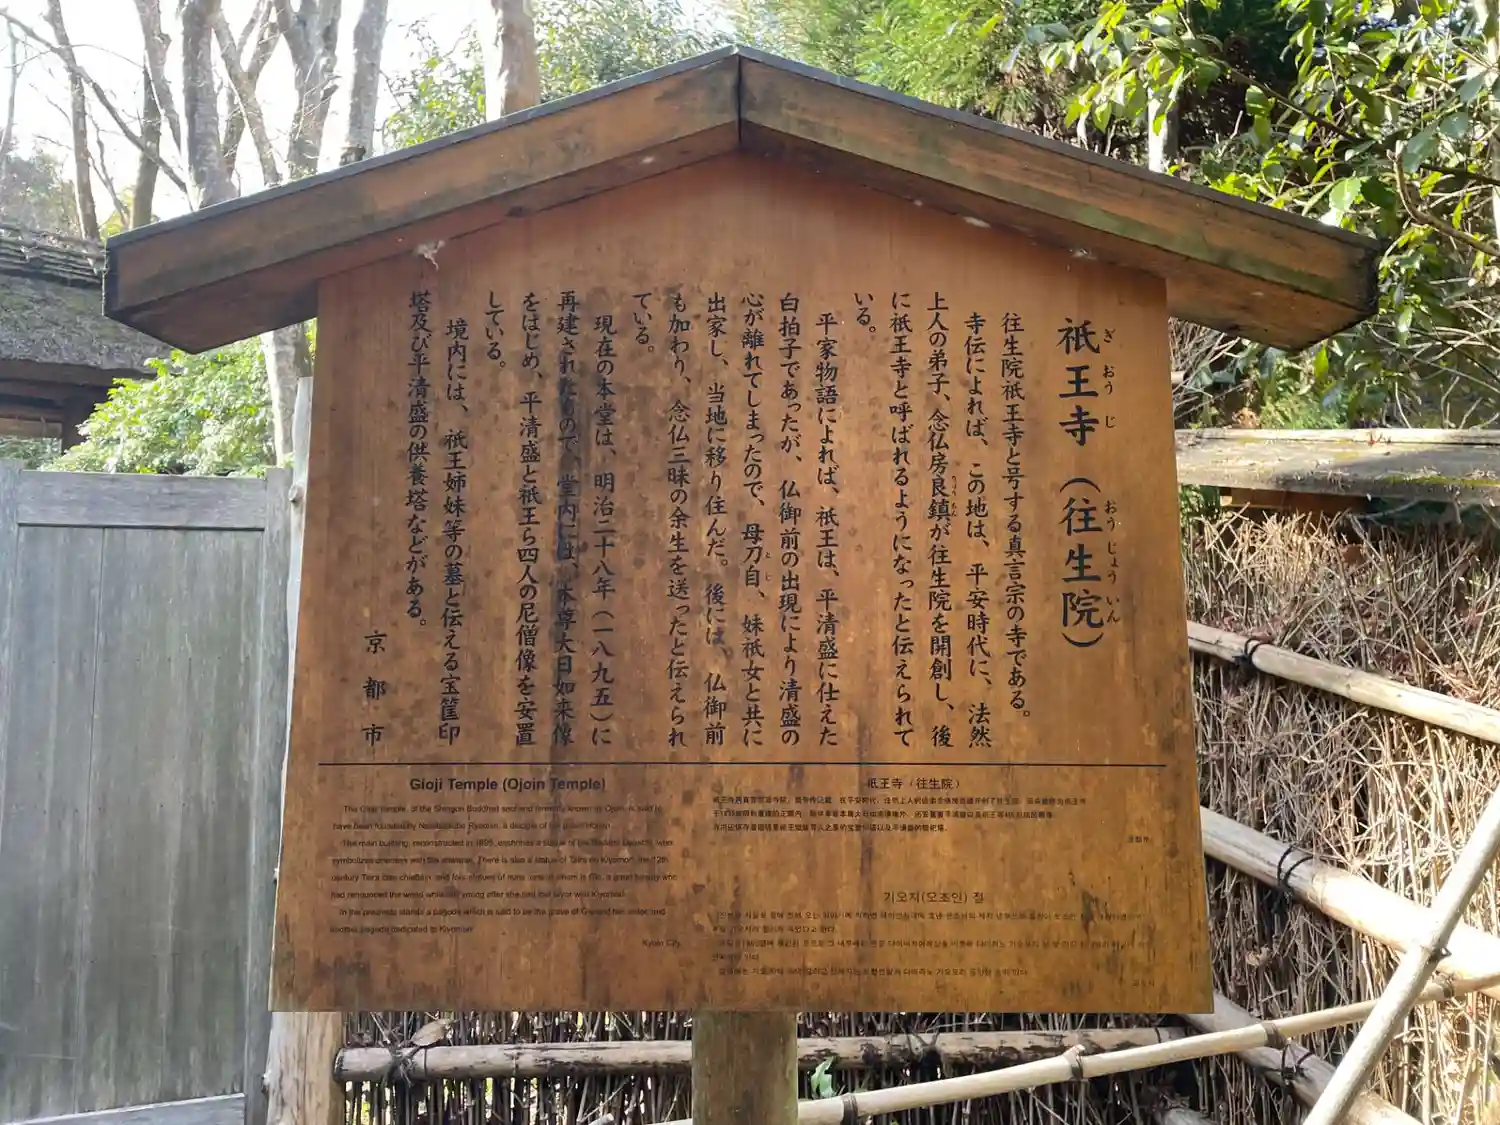 祇王寺（往生院）
ぎおうじ
おうじょういん
往生院祇王寺と号する真言宗の寺である。
寺伝によれば、この地は、平安時代に、法然
上人の弟子、念仏房良鎮が往生院を開創し、後
りょうちん
に祇王寺と呼ばれるようになったと伝えられて
いる。
平家物語によれば、祇王は、平清盛に仕えた
白拍子であったが、仏御前の出現により清盛の
心が離れてしまったので、母刀自、妹祇女と共に
とじ
出家し、当地に移り住んだ。後には、仏御前
も加わり、念仏三昧の余生を送ったと伝えられ
ている。
現在の本堂は、明治二十八年（一八九五）に
再建されたもので、堂内には、本尊大日如来像
をはじめ、平清盛と祇王ら四人の尼僧像を安置
している。
境内には、祇王姉妹等の墓と伝える宝筐印
塔及び平清盛の供養塔などがある。
京都市
Gioji Temple (Ojoin Temple)
The Gioji temple, of the Shingon Buddhist sect and formerly known as Ojoin, is said to
have been founded by Nembutsubo Ryochin, a disciple of the priest Honen.
The main building, reconstructed in 1895, enshrines a statue of the Buddha Dainichi, who
symbolizes oneness with the universe. There is also a statue of Taira no Kiyomori, the 12th
century Taira clan chieftain, and four statues of nuns, one of whom is Gio, a great beauty who
had renounced the world while still young after she had lost favor with Kiyomori.
In the precincts stands a pagoda which is said to be the grave of Gio and her sister, and
another pagoda dedicated to Kiyomori.
Kyoto City
祇王寺（往生院）
기오지(오조인) 절